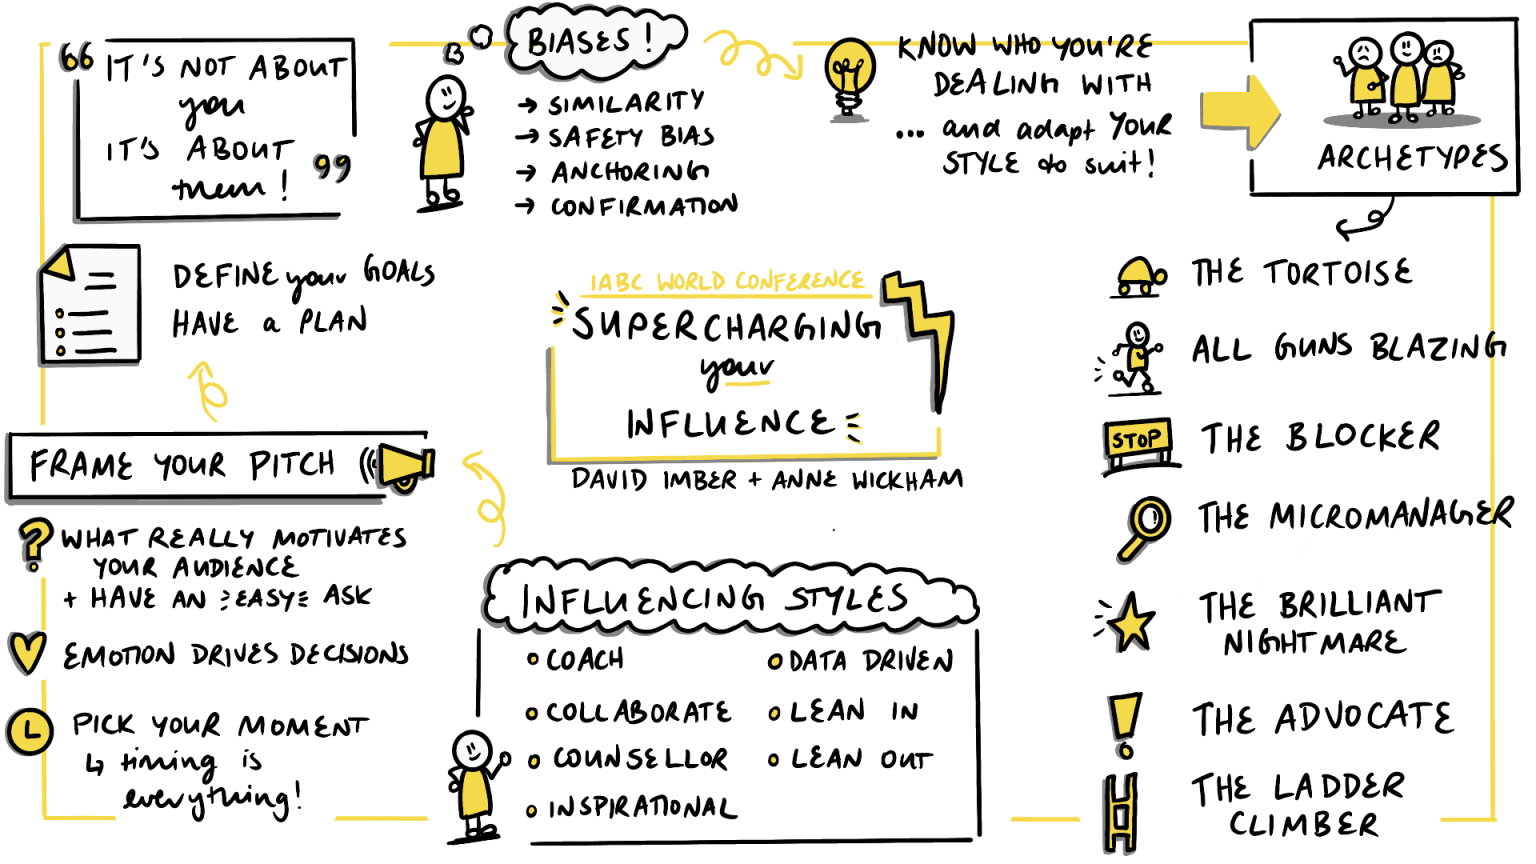 “ IT'S NOT ABOUT
you
IT'S ABOUT
them! ”
BIASES!
→ SIMILARITY
→ SAFETY BIAS
→ ANCHORING
→ CONFIRMATION
KNOW WHO YOU'RE
DEALING WITH
... and adapt YOUR
STYLE to suit!
ARCHETYPES
THE TORTOISE
ALL GUNS BLAZING
STOP
THE BLOCKER
THE MICROMANAGER
THE BRILLIANT
NIGHTMARE
THE ADVOCATE
THE LADDER
CLIMBER
IABC WORLD CONFERENCE
SUPERCHARGING
your
INFLUENCE
DAVID IMBER + ANNE WICKHAM
INFLUENCING STYLES
COACH
COLLABORATE
COUNSELLOR
INSPIRATIONAL
DATA DRIVEN
LEAN IN
LEAN OUT
FRAME YOUR PITCH
? WHAT REALLY MOTIVATES
YOUR AUDIENCE
+ HAVE AN EASY ASK
EMOTION DRIVES DECISIONS
PICK YOUR MOMENT
↳ timing is
everything!
DEFINE your GOALS
HAVE a PLAN